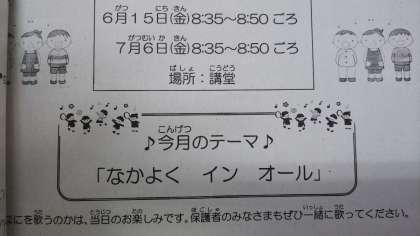 6月15日(金)8:35～8:50 ごろ
7月6日(金)8:35～8:50 ごろ
場所：講堂
♪今月のテーマ♪
「なかよく イン オール」
なにを歌うのかは、当日のお楽しみです。保護者のみなさまもぜひ一緒に歌ってください。